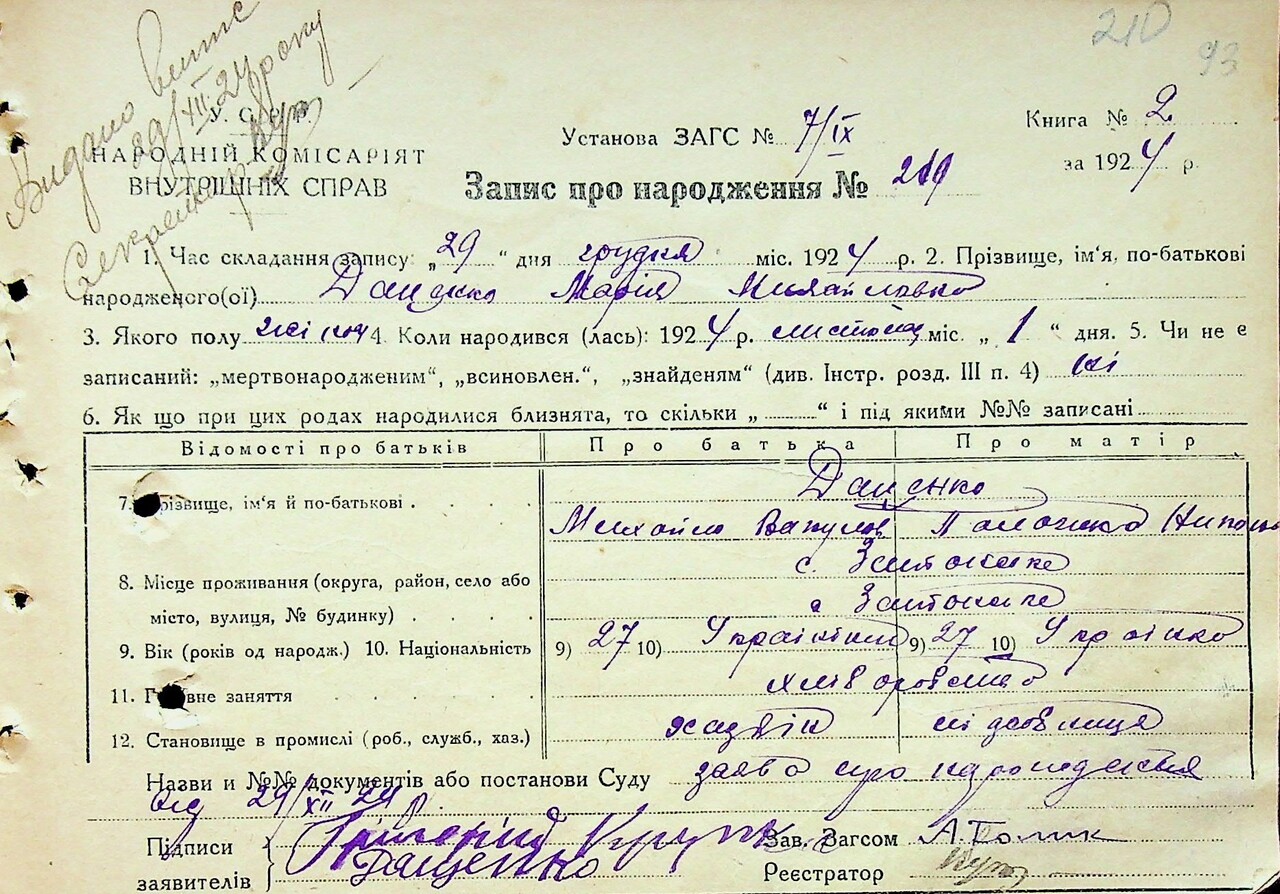 210
93
Видано витяг
29/XII 24 року
Секретар
У. С. Р. Р.
НАРОДНІЙ КОМІСАРІЯТ
ВНУТРІШНІХ СПРАВ
Установа ЗАГС № 7/IX
Книга № 2
за 1924 р.
Запис про народження № 210
1. Час складання запису: „29“ дня грудня міс. 1924 р. 2. Прізвище, ім'я, по-батькові
народженого(ої) Даценко Марія Михайловна
3. Якого полу жіночої 4. Коли народився (лась): 1924 р. листопад міс. „1“ дня. 5. Чи не є
записаний: „мертвонародженим“, „всиновлен.“, „знайденям“ (див. Інстр. розд. III п. 4) ні
6. Як що при цих родах народилися близнята, то скільки „ “ і під якими №№ записані
Відомості про батьків Про батька Про матір
Даценко
7. Прізвище, ім'я й по-батькові
Михайло Вакулов
с.
8. Місце проживання (округа, район, село або
місто, вулиця, № будинку)
9. Вік (років од народж.) 10. Національність 9) 27 10) Українець 9) 27 10) Українка
11. Головне заняття хліборобство
12. Становище в промислі (роб., служб., хаз.) хазяїн
Назви и №№ документів або постанови Суду заява про народження
від 29/XII 24 р.
Підписи Григорій Зав. Загсом А. Голик
заявителів Дащенко Реєстратор